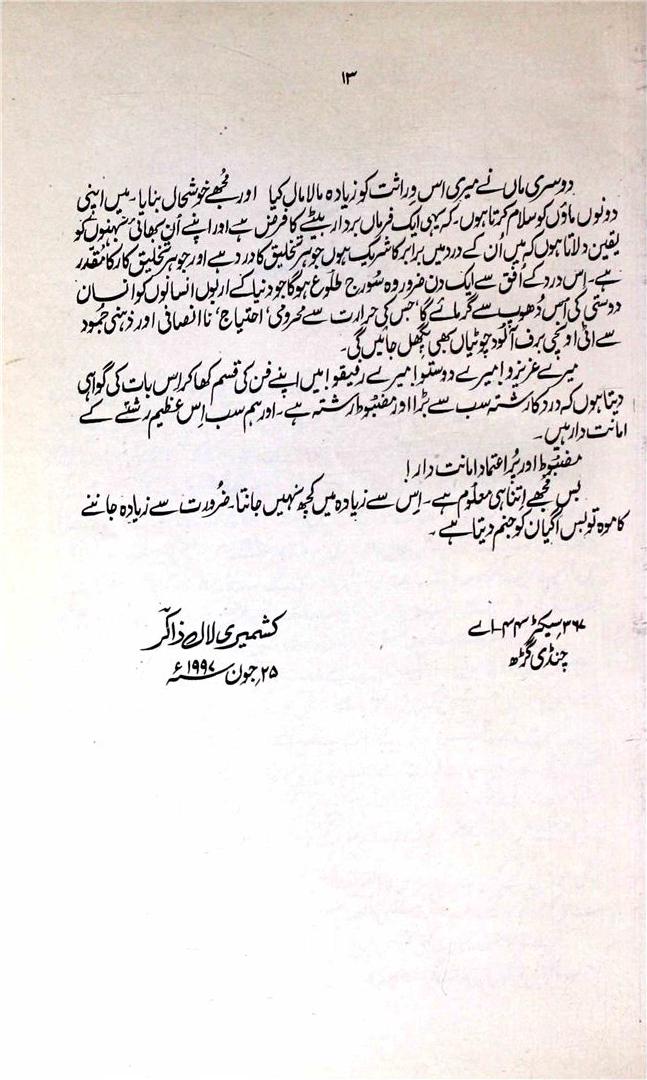 ۱۳
دوسری ماں نے میری اس وراثت کو زیادہ مالا مال کیا اور مجھے خوشحال بنایا۔ میں اپنی
دونوں ماؤں کو سلام کرتا ہوں۔ کہ یہی ایک فرماں بردار بیٹے کا فرض ہے اور اپنے اُن بھائی بہنوں کو
یقین دلاتا ہوں کہ میں اُن کے درد میں برابر کا شریک ہوں جو ہر تخلیق کا درد ہے اور جو ہر تخلیق کار کا مُقدر
ہے۔ اِس درد کے اُفق سے ایک دن ضرور وہ سُورج طلُوع ہوگا جو دنیا کے اربوں انسانوں کو انسان
دوستی کی اُس دُھوپ سے گرمائے گا، جس کی حرارت سے محرومی، احتیاج، ناانصافی اور ذہنی جمُود
سے اٹی اونچی برف آلُود چوٹیاں بھی پگھل جائیں گی۔
میرے عزیزو! میرے دوستو! میرے رفیقو! میں اپنے فن کی قسم کھا کر اِس بات کی گواہی
دیتا ہوں کہ درد کا رشتہ سب سے بڑا اور مضبُوط رشتہ ہے۔ اور ہم سب اِس عظیم رشتے کے
امانت دار ہیں۔
مضبُوط اور پُر اعتماد امانت دار!
بس مُجھے اِتنا ہی معلُوم ہے۔ اِس سے زیادہ میں کچھ نہیں جانتا۔ ضرُورت سے زیادہ جاننے
کا موہ تو بس اگیان کو جنم دیتا ہے۔
۳۶۷، سیکٹر ۴۴-اے
چنڈی گڑھ
کشمیری لال ذاکر
۲۵؍ جون ۱۹۹۷ء